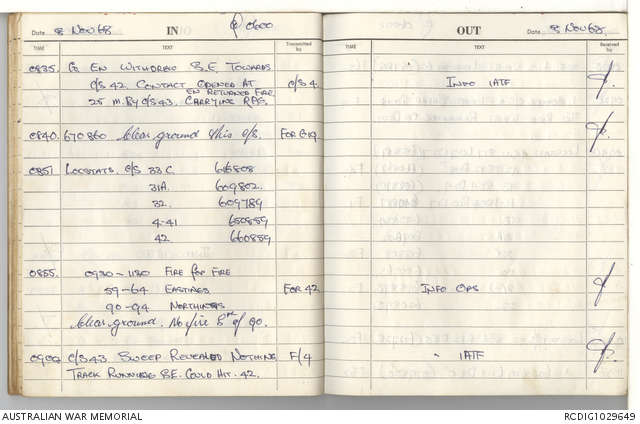 Date 8 Nov 68 IN 0600
OUT Date 8 Nov 68.
TIME TEXT Transmitted by
TIME TEXT Received by
0835. EN WITHDREW S.E. TOWARDS
C/S 42. CONTACT OPENED AT C/S 4. INFO 1ATF
EN RETURNED FIRE
25 M. BY C/S 43. CARRYING RPG.
0840. 670860 Clear ground this c/s. FOR
0851 LOCSTATS. C/S 33 C. 608
31A. 609802.
32. 609789
4-41 650859
42. 660859
0855. 0930-1130 FIRE FOR FIRE
59-64 EASTINGS FOR 42. INFO OPS
90-94 NORTHINGS
Clear ground. No fire of 90.
0900 C/S 43. SWEEP REVEALED NOTHING F/4 1ATF
TRACK RUNNING S.E. COULD HIT. 42.
AUSTRALIAN WAR MEMORIAL RCDIG1029649